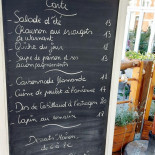 Carte
Salade d'été 13
Chausson aux escargots 15
Quiche du jour 11
Soupe de poisson et ses 13
accompagnements
Carbonnade flamande 15
Cuisse de poulet à l'ardennaise 14
Dos de Cabillaud à l'estragon 18
Lapin au 15
Desserts Maison